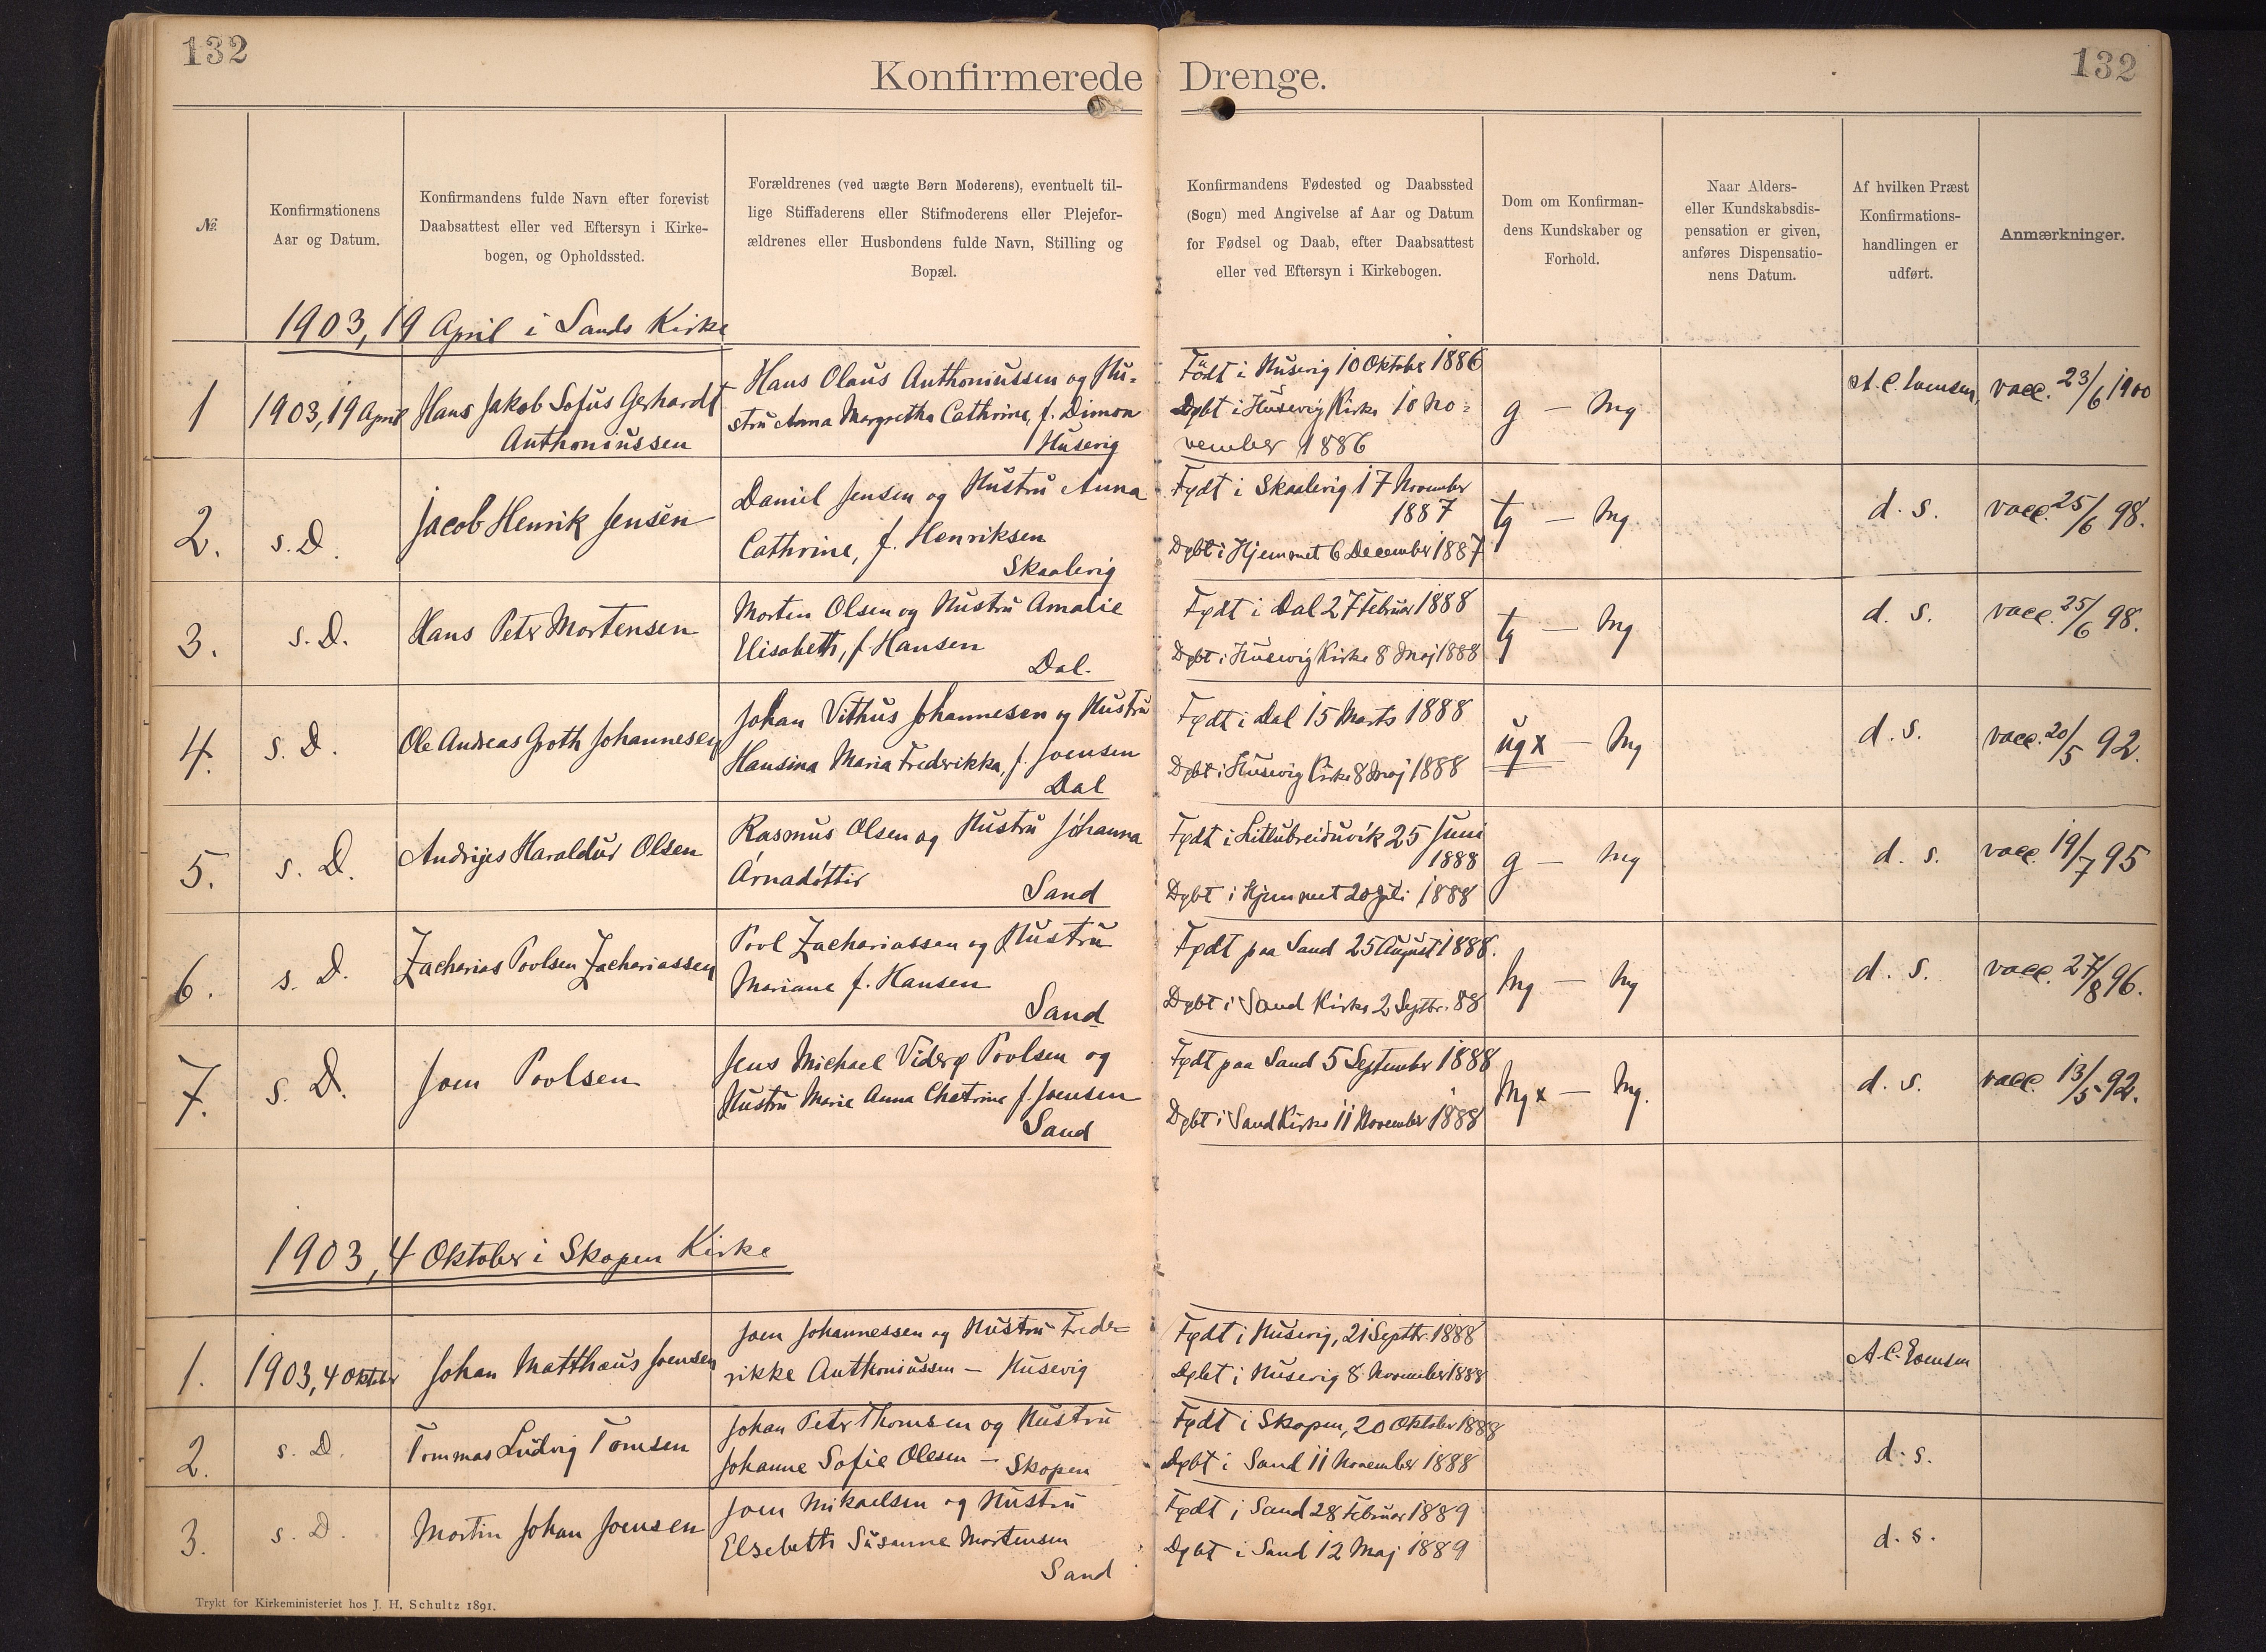 132
132
Konfirmerede Drenge.
№.
Konfirmationens
Aar og Datum.
Konfirmandens fulde Navn efter forevist
Daabsattest eller ved Eftersyn i Kirke-
bogen, og Opholdssted.
Forældrenes (ved uægte Børn Moderens), eventuelt til-
lige Stiffaderens eller Stifmoderens eller Plejefor-
ældrenes eller Husbondens fulde Navn, Stilling og
Bopæl.
Konfirmandens Fødested og Daabssted
(Sogn) med Angivelse af Aar og Datum
for Fødsel og Daab, efter Daabsattest
eller ved Eftersyn i Kirkebogen.
Dom om Konfirman-
dens Kundskaber og
Forhold.
Naar Alders-
eller Kundskabsdis-
pensation er given,
anføres Dispensatio-
nens Datum.
Af hvilken Præst
Konfirmations-
handlingen er
udført.
Anmærkninger.
1903, 19 April i Sands Kirke
1
1903, 19 April
Hans Jakob Sofus Gerhardt
Anthoniussen
Hans Olaus Anthoniussen og Hu-
stru Anna Margretha Cathrine, f. Dimon
Husevig
Födt i Husevig 10 Oktober 1886
Døbt i Husevig Kirke 10 No=
vember 1886
g — mg
A. C. Evensen,
vacc. 23/6 1900
2.
s. D.
Jacob Henrik Jensen
Daniel Jensen og Hustru Anna
Cathrine, f. Henriksen
Skaalevig
Født i Skaalevig 17 November
1887
Døbt i Hjemmet 6 December 1887
tg — mg
d. s.
vacc. 25/6 98.
3.
s. D.
Hans Peter Mortensen
Morten Olsen og Hustru Amalie
Elisabeth, f. Hansen
Dal.
Født i Dal 27 Februar 1888
Døbt i Husevig Kirke 8 Maj 1888
tg — mg
d. s.
vacc. 25/6 98.
4.
s. D.
Ole Andreas Groth Johannesen
Johan Vithus Johannesen og Hustru
Hansina Maria Frederikka, f. Joensen
Dal
Født i Dal 15 Marts 1888
Døbt i Husevig Kirke 8 Maj 1888
ug x — mg
d. s.
vacc. 20/5 92.
5.
s. D.
Andrijes Haraldur Olsen
Rasmus Olsen og Hustru Jóhanna
Árnadóttir
Sand
Født i Litlubreiduvík 25 Juni
1888
Døbt i Hjemmet 20 Juli 1888
g — mg
d. s.
vacc. 19/7 95
6.
s. D.
Zacharias Poulsen Zachariassen
Poul Zachariassen og Hustru
Mariane f. Hansen
Sand
Født paa Sand 25 August 1888.
Døbt i Sand Kirke 2 Septbr. 88
mg — mg
d. s.
vacc. 27/8 96.
7.
s. D.
Joen Poulsen
Jens Michael Viderø Poulsen og
Hustru Marie Anna Chatrine f. Joensen
Sand
Født paa Sand 5 September 1888
Døbt i Sand Kirke 11 November 1888
mg x — mg.
d. s.
vacc. 13/5 92.
1903, 4 Oktober i Skopen Kirke
1.
1903, 4 Oktober
Johan Matthæus Joensen
Joen Johannessen og Hustru Frede=
rikke Anthoniussen — Husevig
Født i Husevig, 21 Septbr. 1888
Døbt i Husevig 8 November 1888
A. C. Evensen
2.
s. D.
Tommas Ludvig Tomsen
Johan Peter Thomsen og Hustru
Johanne Sofie Olesen — Skopen
Født i Skopen, 20 Oktober 1888
Døbt i Sand 11 November 1888
d. s.
3.
s. D.
Mortin Johan Joensen
Joen Mikaelsen og Hustru
Elsebeth Susanne Mortensen
Sand
Født i Sand 28 Februar 1889
Døbt i Sand 12 Maj 1889
d. s.
Trykt for Kirkeministeriet hos J. H. Schultz 1891.